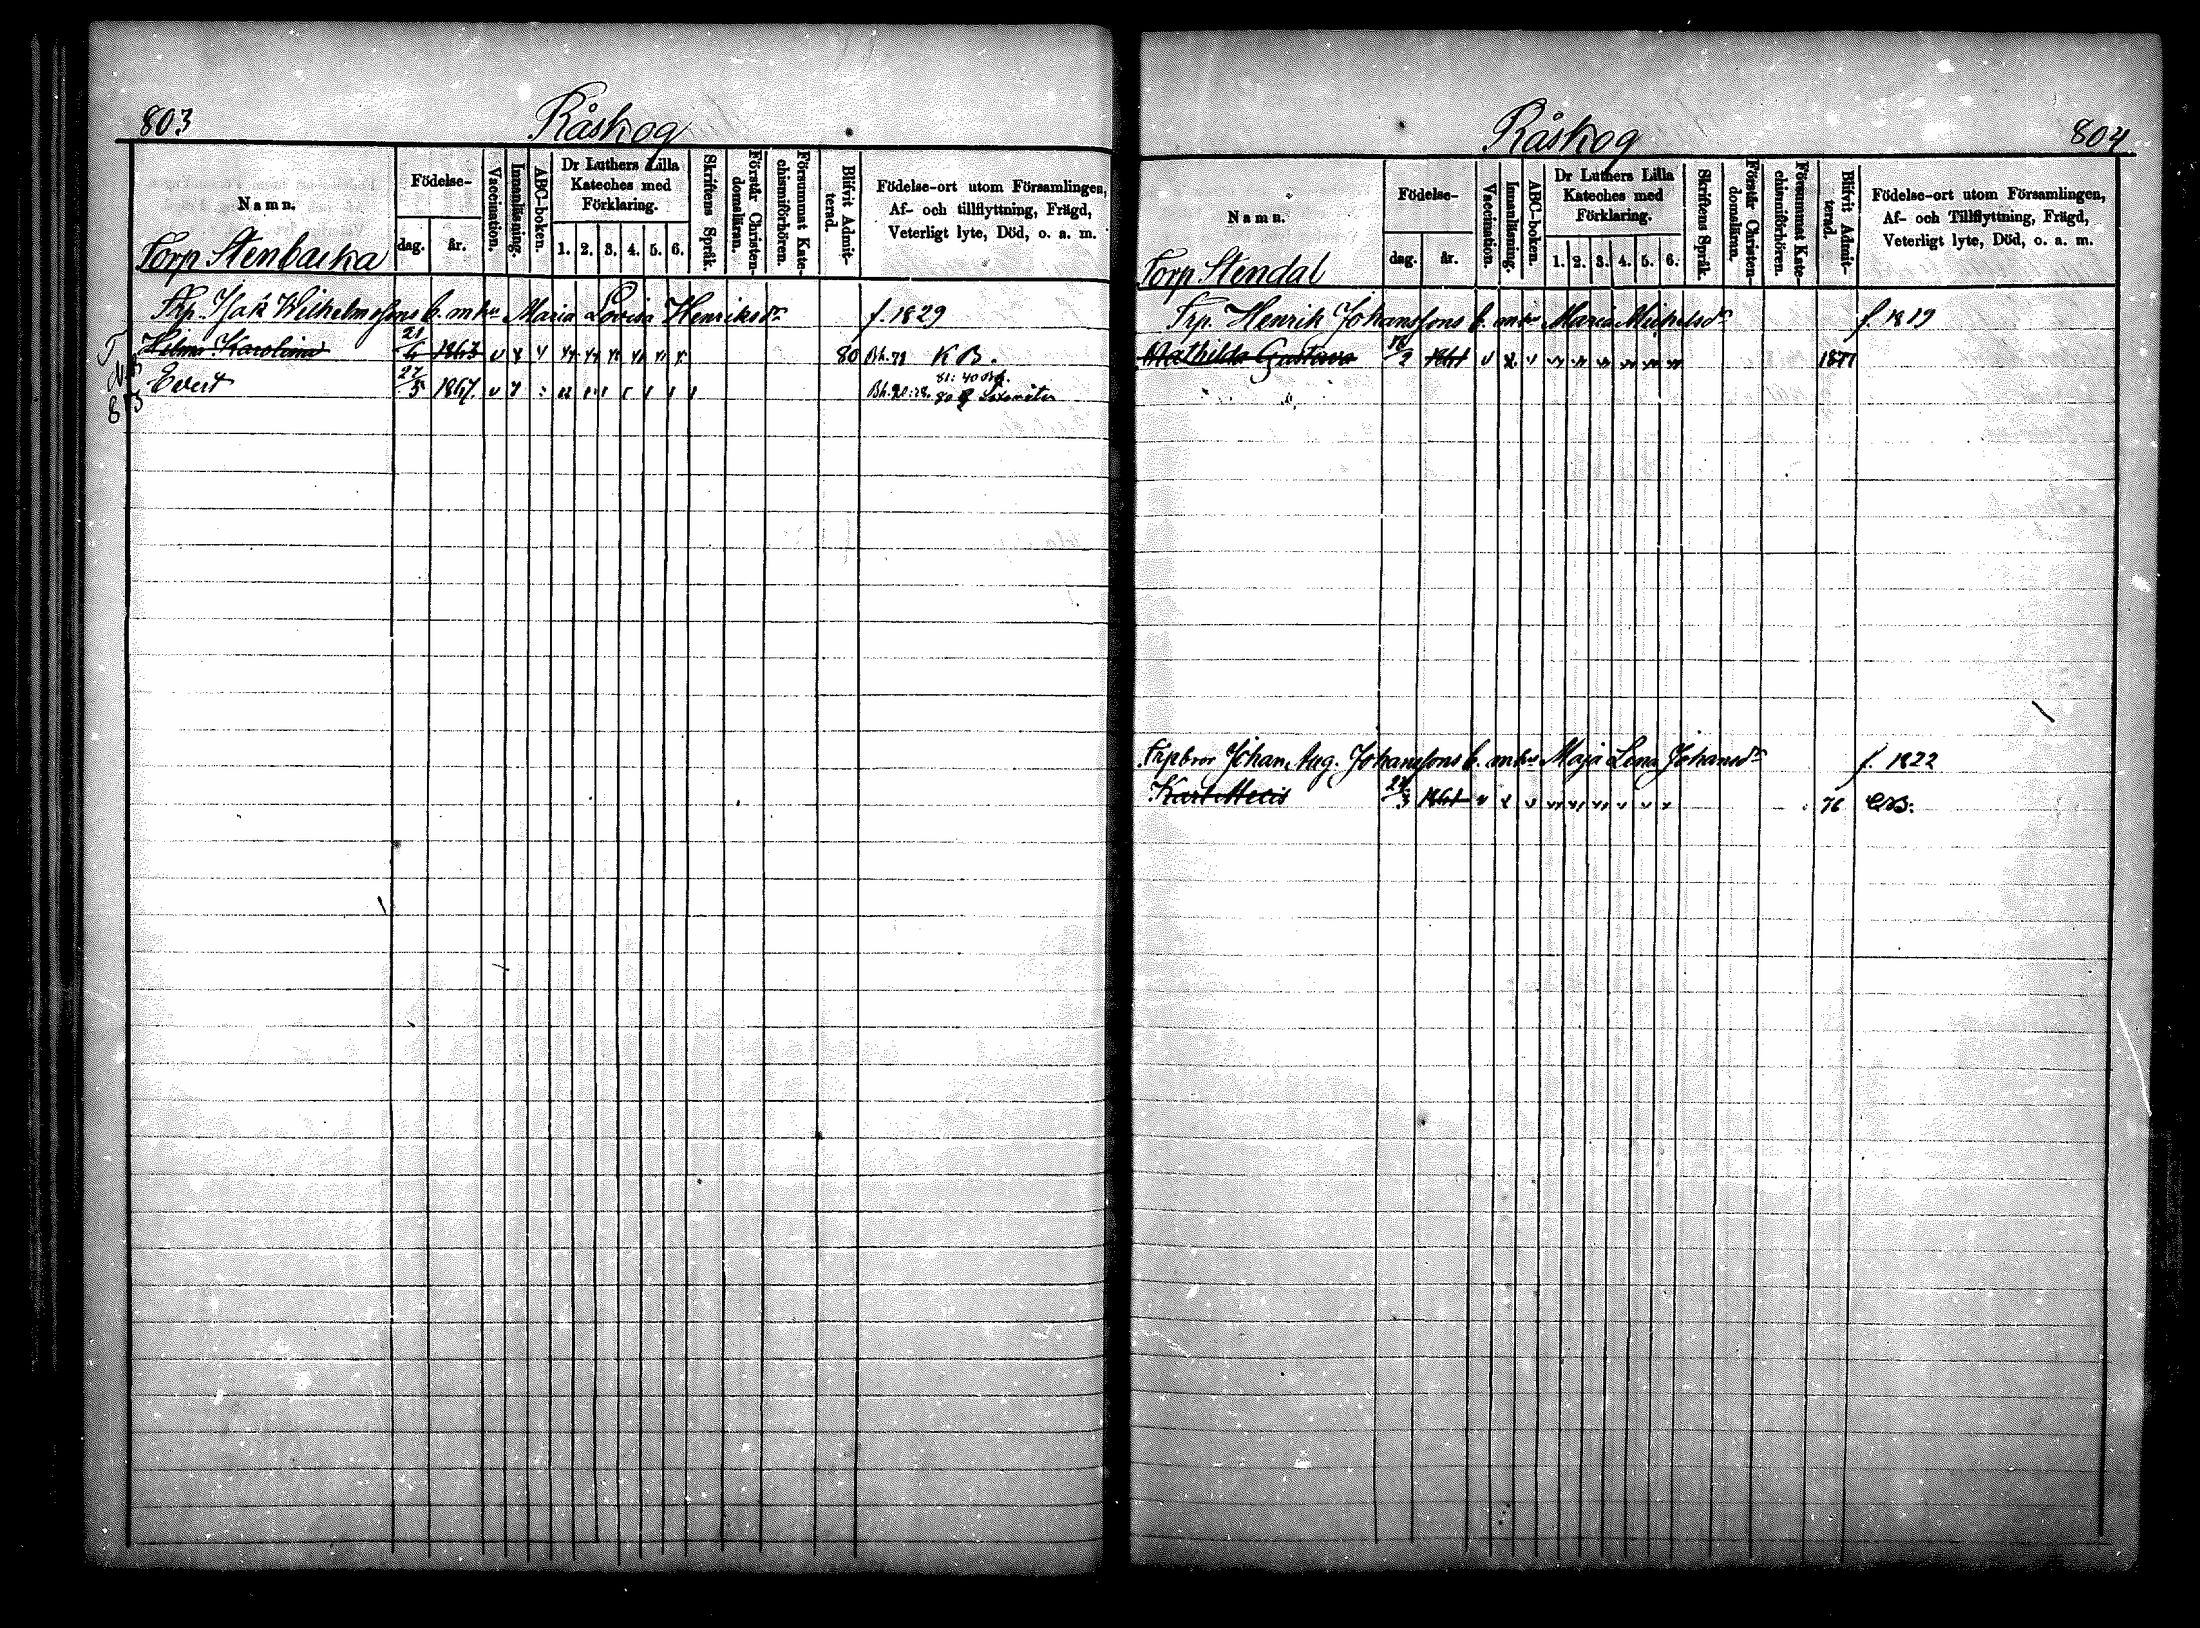 803
Råskog
Namn.
Födelse-
dag.
år.
Vaccination.
Innanläsning.
ABC-boken.
Dr Luthers Lilla
Kateches med
Förklaring.
1. 2. 3. 4. 5. 6.
Skriftens Språk.
Förstår Christen-
domsläran.
Försummat Kate-
chismiförhören.
Blifvit Admit-
terad.
Födelse-ort utom Församlingen,
Af- och tillflyttning, Frägd,
Veterligt lyte, Död, o. a. m.
Torp Stenbacka
Trp. Isak Wilhelmssons b. m hu Maria Lovisa Henriksdr f. 1829
Hilma Karolina 21/6 1863 80 Bh. 78 K B.
Evert 27/5 1867.
Råskog
804
Namn.
Födelse-
dag.
år.
Vaccination.
Innanläsning.
ABC-boken.
Dr Luthers Lilla
Kateches med
Förklaring.
1. 2. 3. 4. 5. 6.
Skriftens Språk.
Förstår Christen-
domsläran.
Försummat Kate-
chismiförhören.
Blifvit Admit-
terad.
Födelse-ort utom Församlingen,
Af- och Tillflyttning, Frägd,
Veterligt lyte, Död, o. a. m.
Torp Stendal
Trp. Henrik Johanssons b. m hu Maria Michelsdr f. 1819
Mathilda Gustava 1861 1877
Trpbror Johan Aug. Johanssons b. m hu Maja Lena Johansdr f. 1822
Karl 1861 76